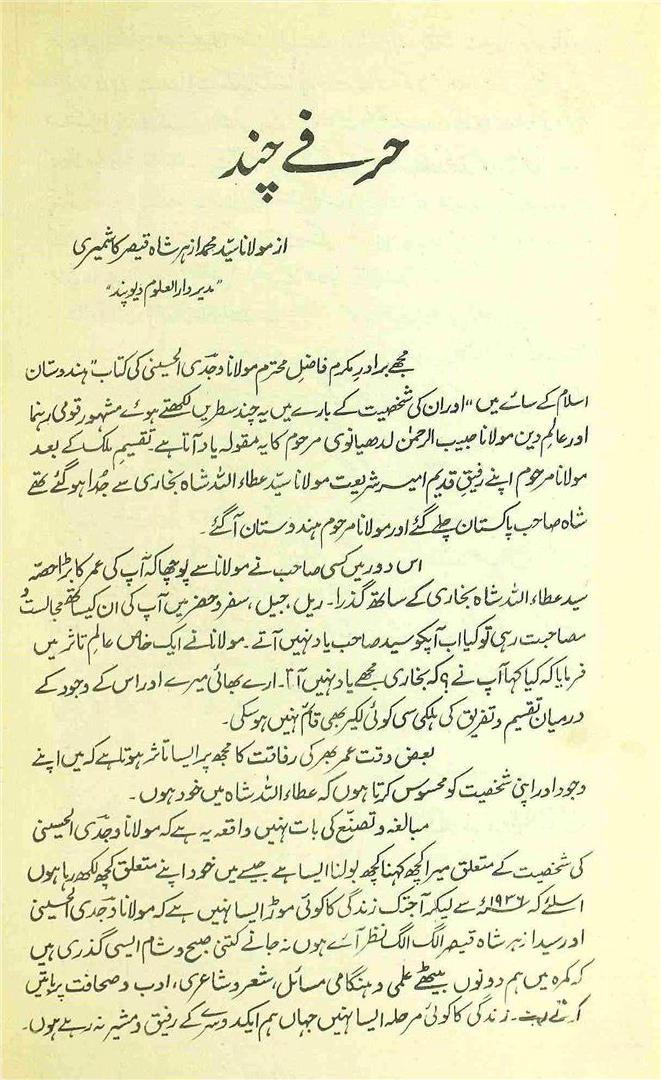 حرفے چند
از مولانا سیّد محمد ازہر شاہ قیصر کاشمیری
"مدیر دارالعلوم دیوبند"
مجھے برادرِ مکرم فاضلِ محترم مولانا وجدی الحسینی کی کتاب "ہندوستان
اسلام کے سائے میں" اور ان کی شخصیت کے بارے میں یہ چند سطریں لکھتے ہوئے مشہور قومی رہنما
اور عالمِ دین مولانا حبیب الرحمٰن لدھیانوی مرحوم کا یہ مقولہ یاد آتا ہے۔ تقسیمِ ملک کے بعد
مولانا مرحوم اپنے رفیقِ قدیم امیر شریعت مولانا سیّد عطاء اللہ شاہ بخاری سے جُدا ہو گئے تھے
شاہ صاحب پاکستان چلے گئے اور مولانا مرحوم ہندوستان آ گئے۔
اس دور میں کسی صاحب نے مولانا سے پوچھا کہ آپ کی عمر کا بڑا حصّہ
سید عطاء اللہ شاہ بخاری کے ساتھ گذرا۔ ریل، جیل، سفر و حضر میں آپ کی ان کیساتھ مجالست و
مصاحبت رہی تو کیا اب آپکو سید صاحب یاد نہیں آتے۔ مولانا نے ایک خاص عالمِ تاثر میں
فرمایا کہ کیا کہا آپ نے؟ کہ بخاری مجھے یاد نہیں آتا۔ ارے بھائی میرے اور اس کے وجود کے
درمیان تقسیم و تفریق کی ہلکی سی کوئی لکیر بھی قائم نہیں ہو سکی۔
بعض وقت عمر بھر کی رفاقت کا مجھ پر ایسا تاثر ہوتا ہے کہ میں اپنے
وجود اور اپنی شخصیت کو محسوس کرتا ہوں کہ عطاء اللہ شاہ میں خود ہوں۔
مبالغہ و تصنّع کی بات نہیں واقعہ یہ ہے کہ مولانا وجدی الحسینی
کی شخصیت کے متعلق میرا کچھ کہنا کچھ بولنا ایسا ہے جیسے میں خود اپنے متعلق کچھ لکھ رہا ہوں
اسلئے کہ ۱۹۳۶ء سے لیکر آجتک زندگی کا کوئی موڑ ایسا نہیں ہے کہ مولانا وجدی الحسینی
اور سید ازہر شاہ قیصر الگ الگ نظر آئے ہوں نہ جانے کتنی صبح و شام ایسی گذری ہیں
کہ کمرہ میں ہم دونوں بیٹھے علمی و ہنگامی مسائل، شعر و شاعری، ادب و صحافت پر باتیں
کرتے رہے۔ زندگی کا کوئی مرحلہ ایسا نہیں جہاں ہم ایکدوسرے کے رفیق و مشیر نہ رہے ہوں۔